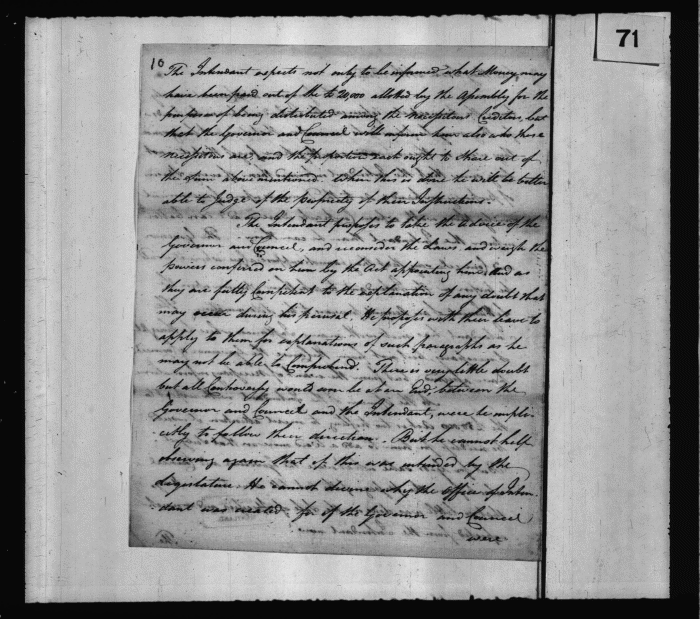 71
10
The Intendant expects not only to be informed what Money may
have been paid out of the £20,000 allotted by the Assembly for the
purposes of being distributed among the necessitous Creditors but
that the Governor and Council will inform him also who those
necessitous are, and the proportion each ought to share out of
the sum above mentioned when this is done he will be better
able to Judge of the propriety of their Instructions.
The Intendant proposes to take the advice of the
Governor and Council, and reconsider the clauses and weigh the
powers conferred on him by the Act appointing him. And as
they are fully Competent to the explanation of any doubt that
may occur during his perusal. He proposes with their leave to
apply to them for explanations of such paragraphs as he
may not be able to Comprehend. There is very little doubt
but all Controversy would soon be at an End, between the
Governor and Council and the Intendant, were he implic-
itly to follow their direction. But he cannot help
observing again that if this was intended by the
Legislature. He cannot devine why the Office of Inten-
dant was created, for if the Governor and Council
were